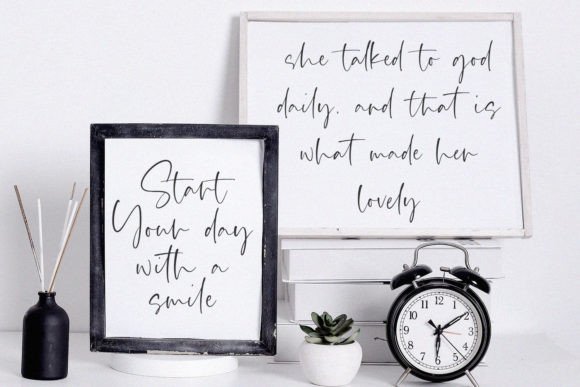 she talked to god
daily, and that is
what made her
lovely
Start
Your day
with a
smile